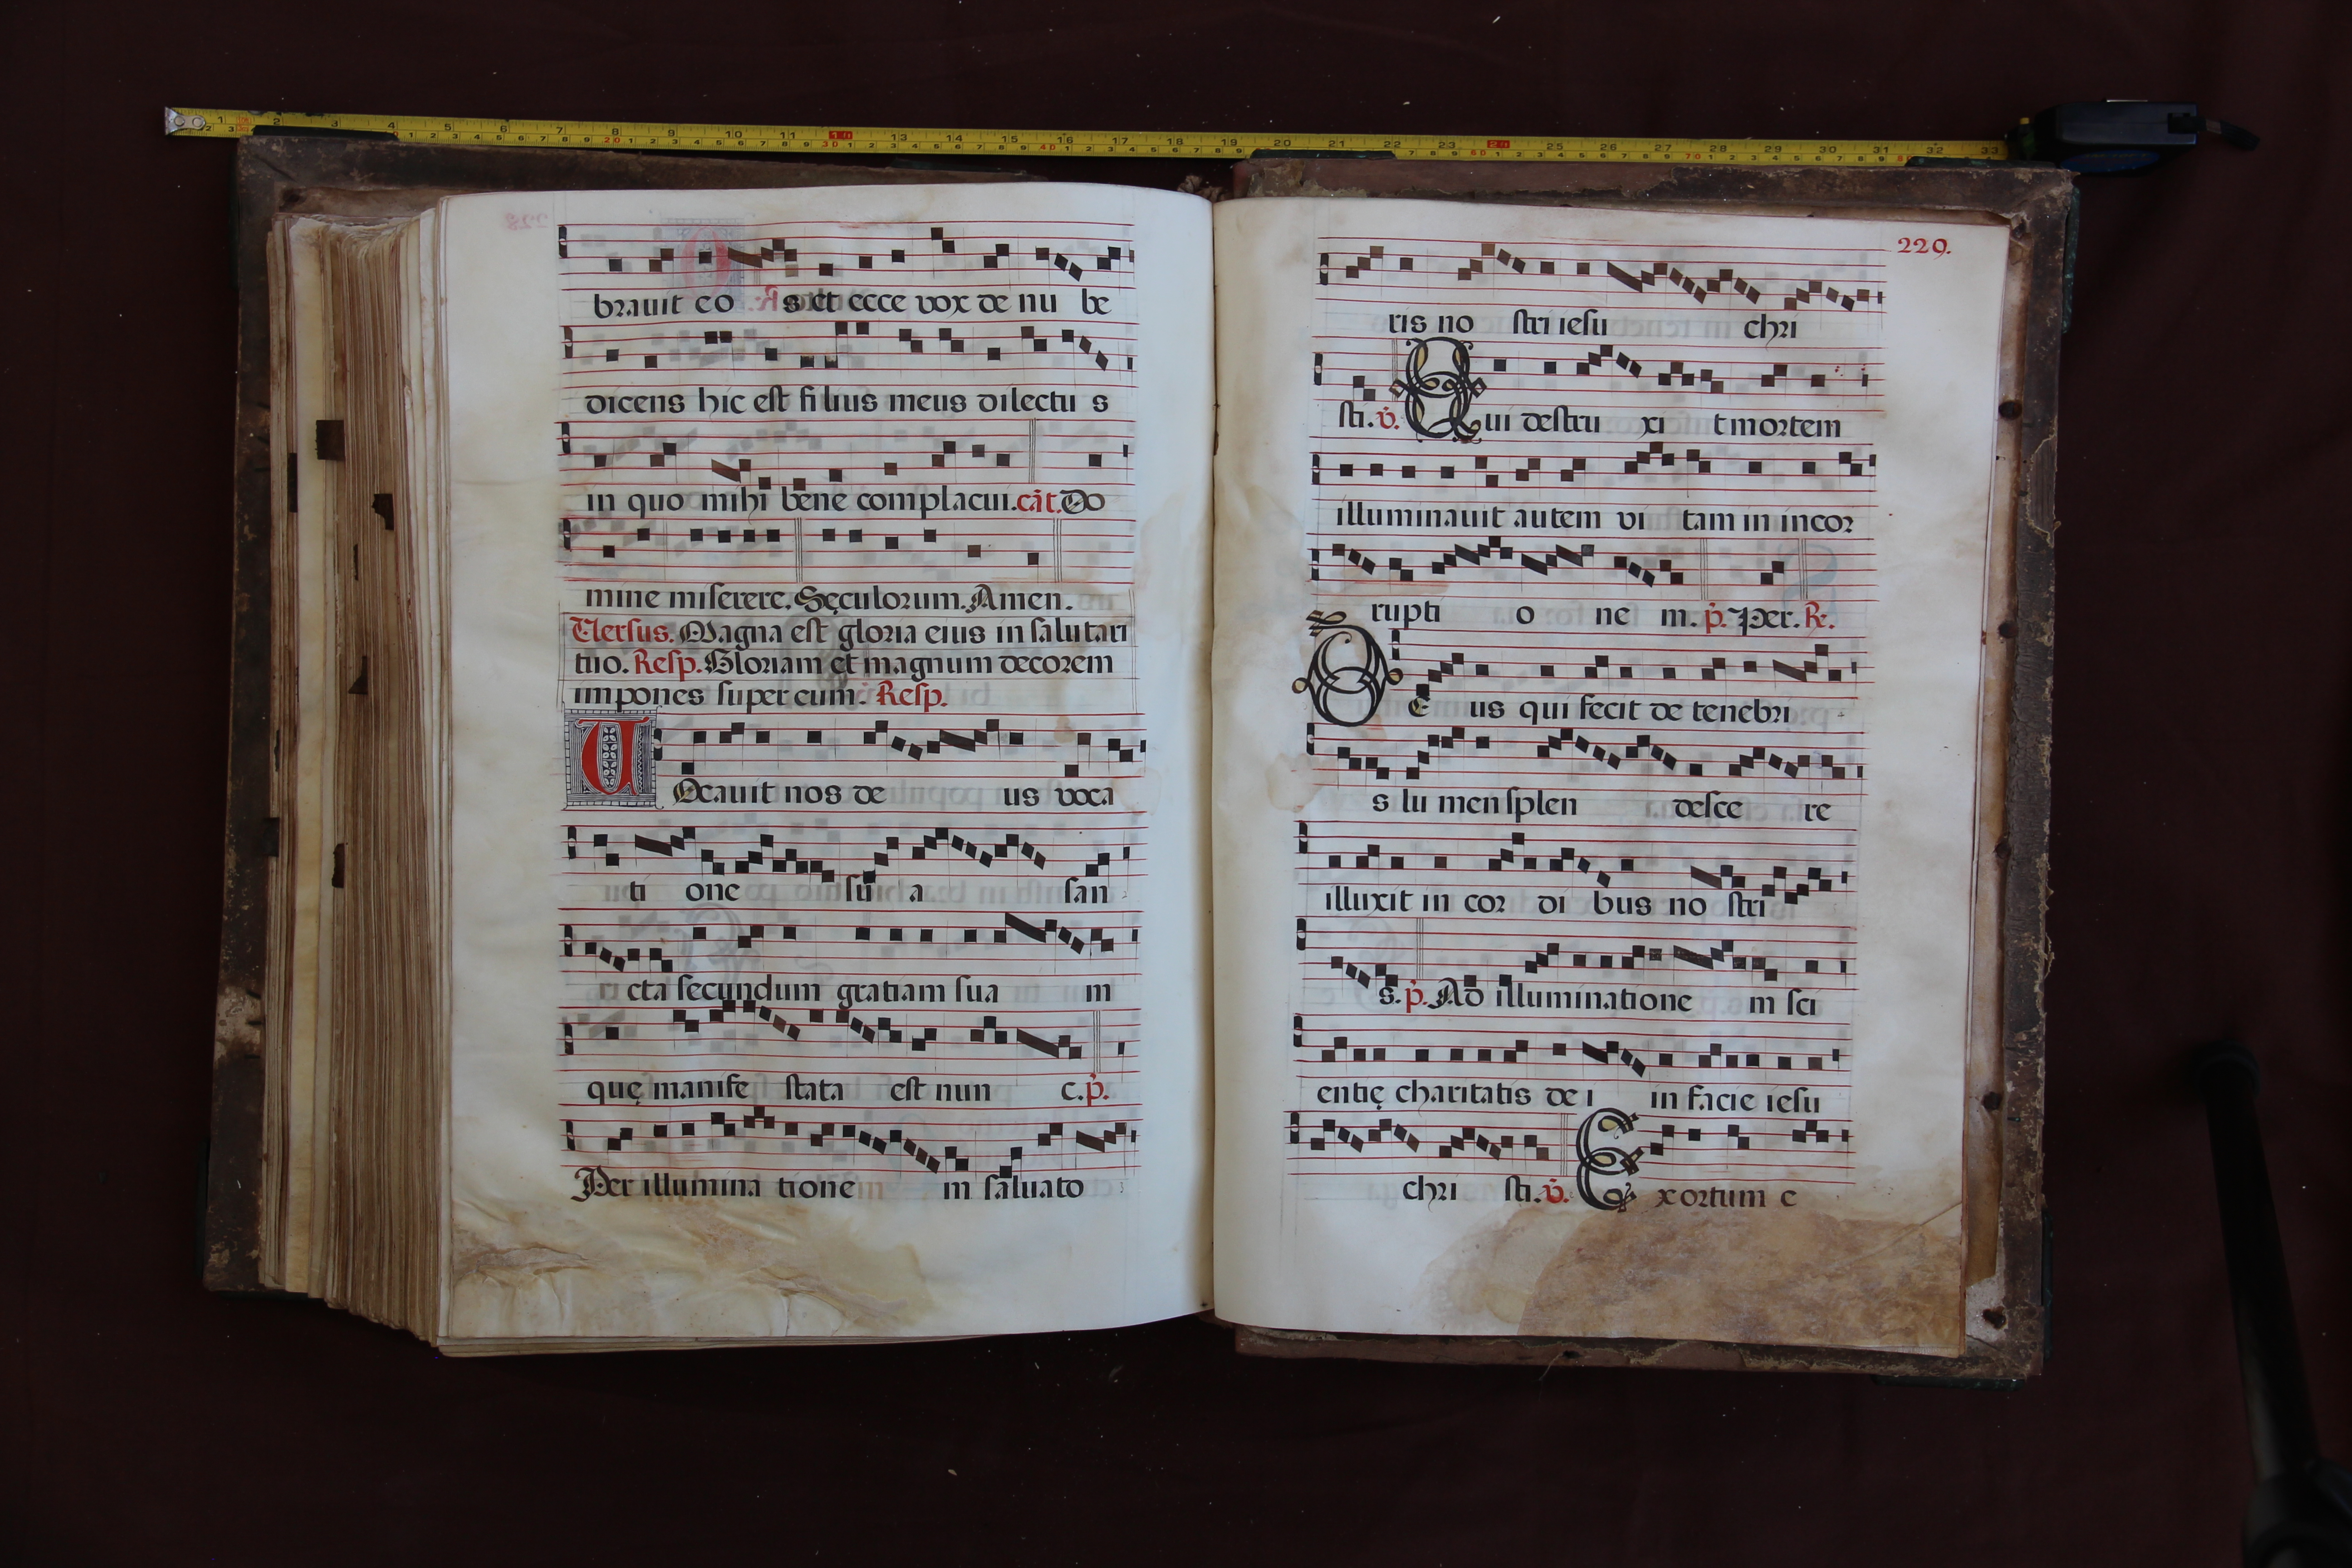 brauit eo s et ecce vox de nu be
dicens hic est filius meus dilectu s
in quo mihi bene complacui. cãt. Do
mine miserere. Sęculorum. Amen.
Versus. Magna est gloria eius in salutari
tuo. Resp. Gloriam et magnum decorem
impones super eum. Resp.
VOcauit nos de us voca
ti one su a san
cta secundum gratiam sua m
quę manife stata est nun c. p̃.
Per illumina tione m saluato
229.
ris no stri iesu chri
sti. v̇. Qui destru xi t mortem
illuminauit autem vi tam in incor
rupti o ne m. p̃. Per. R.
DE us qui fecit de tenebri
s lu men splen desce re
illuxit in cor di bus no stri
s. p̃. Ad illuminatione m sci
entię charitatis de i in facie iesu
chri sti. v̇. Exortum e